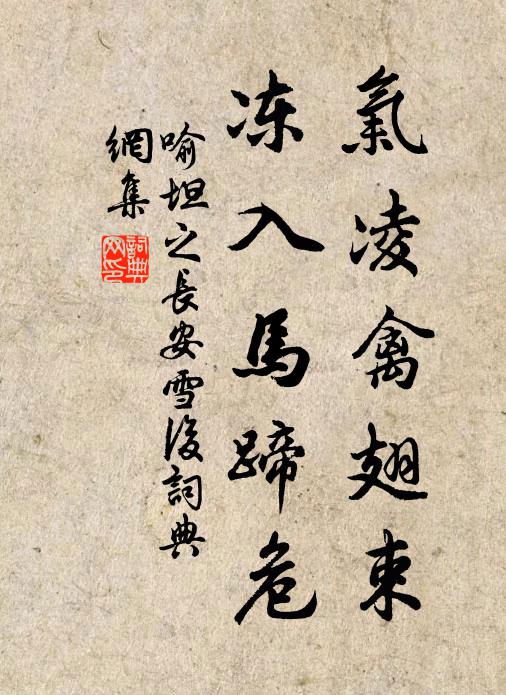 氣凌禽翅束
冻入馬蹄危
喻坦之長安雪後詞典
網集
詞典
网印